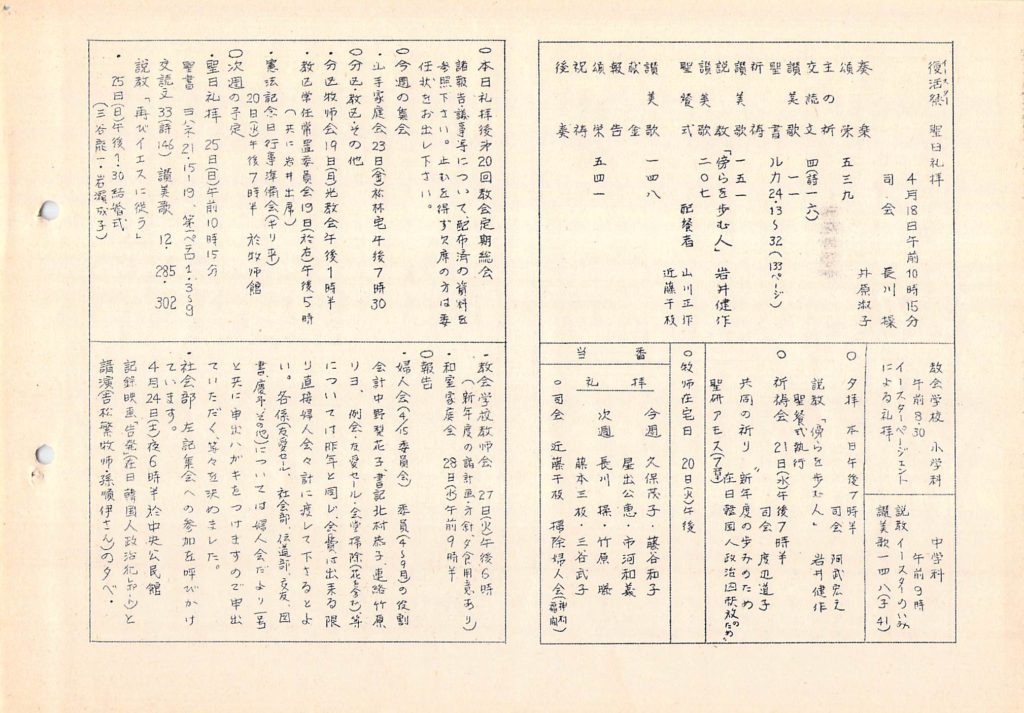 イースター
復活祭 聖日礼拝
4月18日午前10時15分
司会 長川操
奏楽 井原淑子
頌栄 五三九
主の祈
交読文 四(詩一六)
讃美歌 一一
聖書 ルカ24・13〜32(133ページ)
祈祷
讃美歌 一五一
説教 「傍らを歩む人」 岩井健作
讃美歌 二〇七
聖餐式 配餐者 山川正作
近藤千枝
讃美歌 一四八
献金
報告
頌栄 五四一
祝祷
後奏
教会学校 小学科
午前8・30
イースターページェント
による礼拝
中学科
午前9時
説教 イースターのいみ
讃美歌一四八(子41)
○夕拝 本日午後7時半
司会 阿武宏之
説教 「傍らを歩む人」 岩井健作
聖餐式執行
○祈祷会 21日(水)午後7時半
司会 度辺道子
共同の祈り 〃新年度の歩みのため
在日韓国人政治囚釈放のため
聖研アモス(7章)
○牧師在宅日 20日(火)午後
当番
礼拝
今週 久保茂子・藤谷和子
星出公恵・市河和義
次週 長川操・竹原勝
藤本三枝・三谷武子
○司会 近藤千枝 掃除婦人会
○本日礼拝後第20回教会定期総会
諸報告・議事等について、配布済の資料を
参照下さい。止むを得ず欠席の方は委
任状をお出し下さい。
○今週の集会
・山手家庭会23日(金)林宅午後7時30
○分区・教区・その他
・分区牧師会19日(月)光教会午後1時半
・教区常任常置委員会19日(於右)午後5時
(共に岩井出席)
・憲法記念日行事準備会(キリ平)
20日(火)午後7時半 於牧師館
○次週の予定
・聖日礼拝 25日(日)午前10時15分
聖書 ヨハネ21・15-19、第一ペテロ1・3〜9
交読文33(詩146) 讃美歌 12・285・302
説教「再びイエスに従う」
・25日(日)午後1・30結婚式
(三谷龍一・岩瀬成子)
・教会学校教師会 27日(火)午後6時
(新年度の諸計画・方針・夕食用意あり)
・和室家庭会 28日(水)午前9時半
○報告
・婦人会(4/15委員会) 委員(4〜9月)の役割
会計中野梨花子、書記北村恭子、連絡竹原
リヨ、例会・友愛セール・会堂掃除(花当番も)等
については昨年と同じ。会費は出来る限
り直接婦人会々計に渡して下さるとよ
い。各係(友愛セール、社会部、伝道部、文友、図
書、慶弔、その他)については婦人会だより一号
と共に申出ハガキをつけますので申出
ていただく等々を決めました。
・社会部 左記集会への参加を呼びかけ
ています。
4月24日(土)夜6時半於中央公民館
記録映画「告発」(在日韓国人政治犯レポート)と
講演(吉松繁牧師・孫順伊さん)の夕べ・